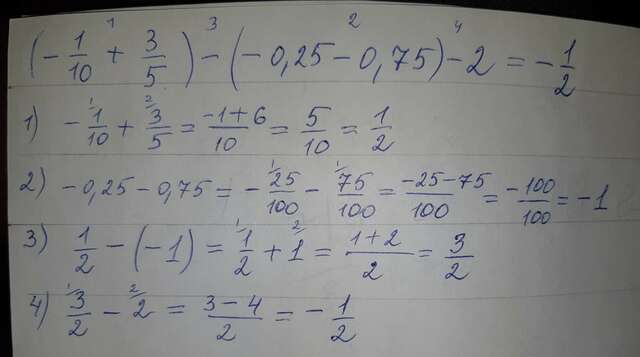 (-1/10 + 3/5) - (-0,25 - 0,75) - 2 = -1/2
1) -1/10 + 3/5 = (-1+6)/10 = 5/10 = 1/2
2) -0,25 - 0,75 = -25/100 - 75/100 = (-25-75)/100 = -100/100 = -1
3) 1/2 - (-1) = 1/2 + 1 = (1+2)/2 = 3/2
4) 3/2 - 2 = (3-4)/2 = -1/2